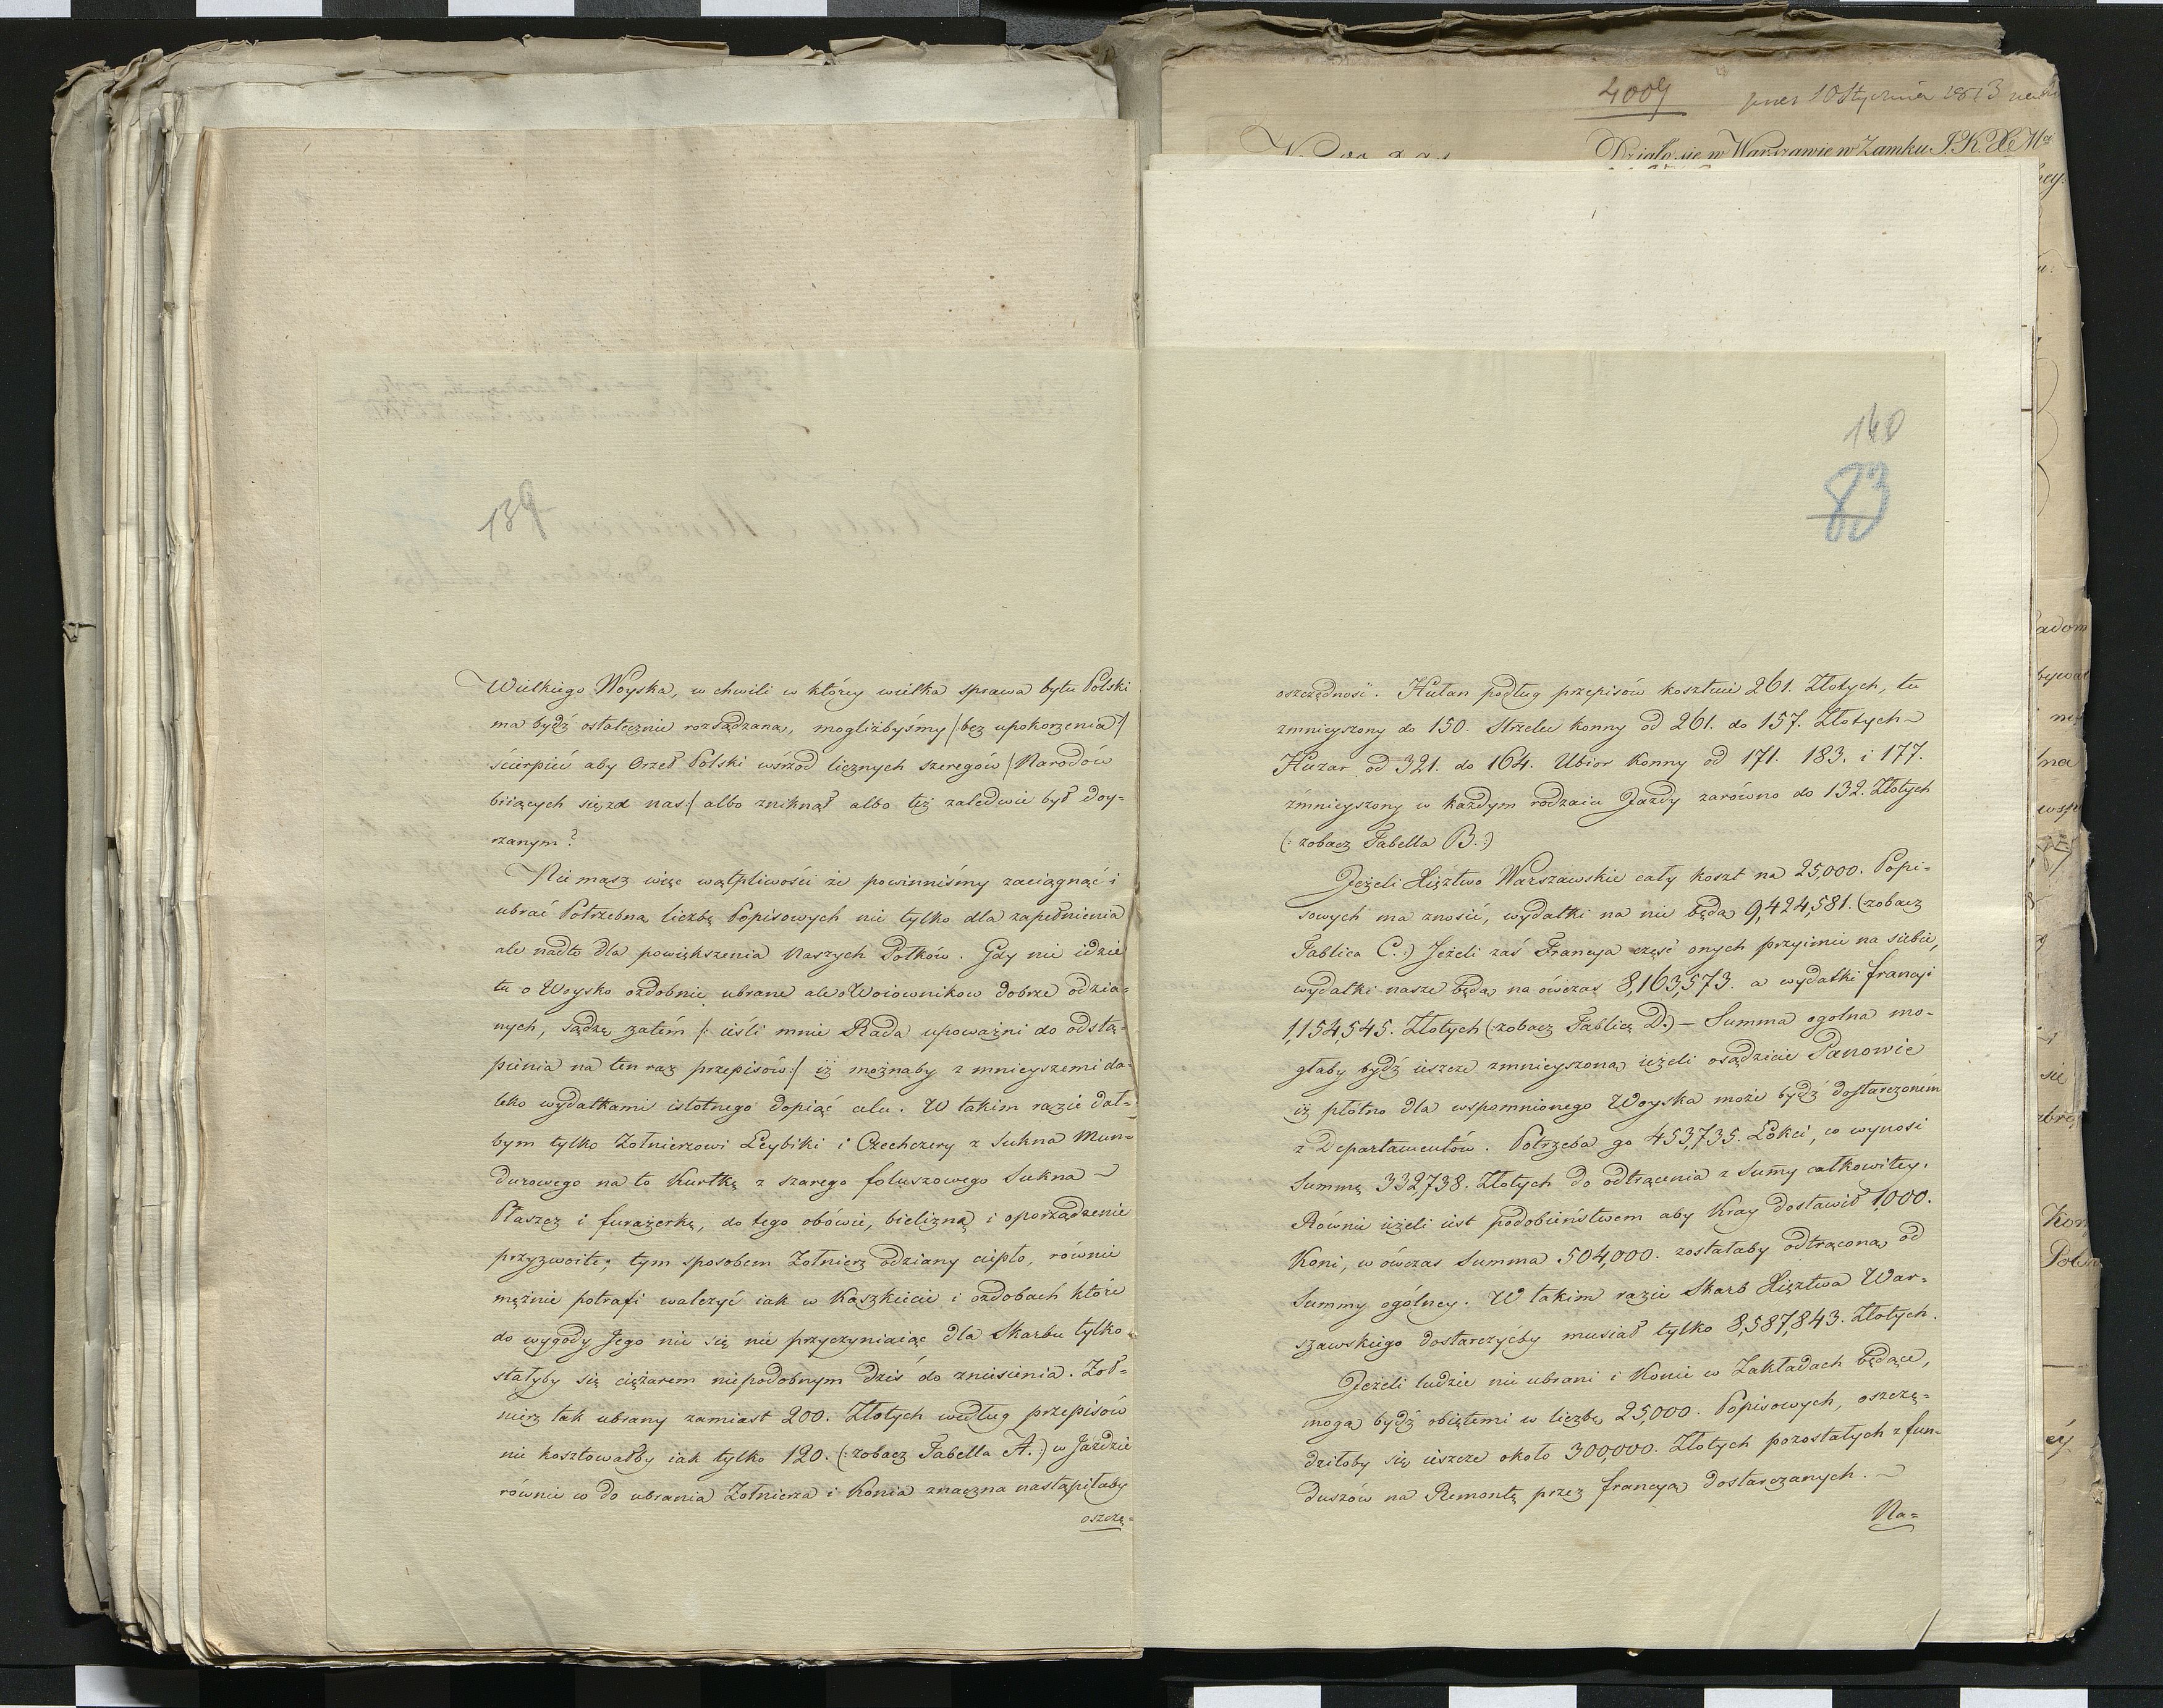 139
Wielkiego Woyska, w chwili w którey wielka sprawa bytu Polski
ma bydź ostatecznie rozsądzana, mogliżbyśmy /:bez upokorzenia:/
ścierpieć aby Orzeł Polski wśrzod licznych szeregów /Narodów
biiących się za nas:/ albo zniknął albo też zaledwie był doy-
rzanym?
Nie masz więc wątpliwości że powinniśmy zaciągnąć i
ubrać Potrzebną liczbę Popisowych nie tylko dla zapełnienia
ale nadto dla powiększenia Naszych Połków. Gdy nie idzie
tu o Woysko ozdobnie ubrane ale o Woiownikow dobrze odzia-
nych, sądzę zatém /: ieśli mnie Rada upoważni do odstą-
pienia na ten raz przepisów:/ iż możnaby z mnieyszemi da-
leko wydatkami istotnego dopiąć celu. W takim razie dał-
bym tylko Żołnierzowi Leybiki i Czechczery z Sukna Mun-
durowego na to Kurtkę z szarego foluszowego Sukna ~
Płaszcz i furażerkę, do tego obówie, bieliznę i oporządzenie
przyzwoite; tym sposobem Żołnierz odziany ciepło, równie
mężnie potrafi walczyć iak w Kaszkiecie i ozdobach które
do wygody Jego nic się nie przyczyniaiąc dla Skarbu tylko
stałyby się ciężarem niepodobnym dziś do zniesienia. Żoł-
nierz tak ubrany zamiast 200. Złotych według przepisów
nie kosztowałby iak tylko 120. (: zobacz Tabella A.:) w Jaździe
równie co do ubrania Żołnierza i Konia znaczna nastąpiłaby
oszczę-
4009
10 Stycznia 1813
Działo się w Warszawie w Zamku J. K. X. Mci
140
83
oszczędność. Hułan podług przepisów kosztuie 261. Złotych, tu
zmnieyszony do 150. Strzelec konny od 261. do 157. Złotych ~
Huzar od 321. do 164. Ubior Konny od 171. 183. i 177.
zmnieyszony w każdym rodzaiu Jazdy zarówno do 132. Złotych
(: zobacz Tabella B.:)
Jeżeli Xięztwo Warszawskie cały koszt na 25,000. Popi-
sowych ma znosić, wydatki na nie będą 9,424,581. (zobacz
Tablica C.:) Jeżeli zaś Francya część onych przyimie na siebie,
wydatki nasze będą na ówczas 8,163,573. a wydatki francyi
1,154,545. Złotych (zobacz Tablicę D.) — Summa ogolna mo-
głaby bydź ieszcze zmnieyszoną ieżeli osądzicie Panowie
iż płótno dla wspomnionego Woyska może bydź dostarczoném
z Departamentów. Potrzeba go 453,735. Łokci, co wynosi
Summę 332,738. Złotych do odtrącenia z Summy całkowitey.
Równie ieżeli iest podobieństwem aby Kray dostawił 1,000.
Koni, w ówczas Summa 504,000. zostałaby odtrąconą od
Summy ogólney. W takim razie Skarb Xięztwa War-
szawskiego dostarczyćby musiał tylko 8,587,843. Złotych.
Jeżeli ludzie nie ubrani i Konie w Zakładach będące,
mogą bydź obiętemi w liczbę 25,000. Popisowych, oszczę-
dziłoby się ieszcze około 300,000. Złotych pozostałych z fun-
duszów na Remontę przez francyą dostarczanych. ~
Na-